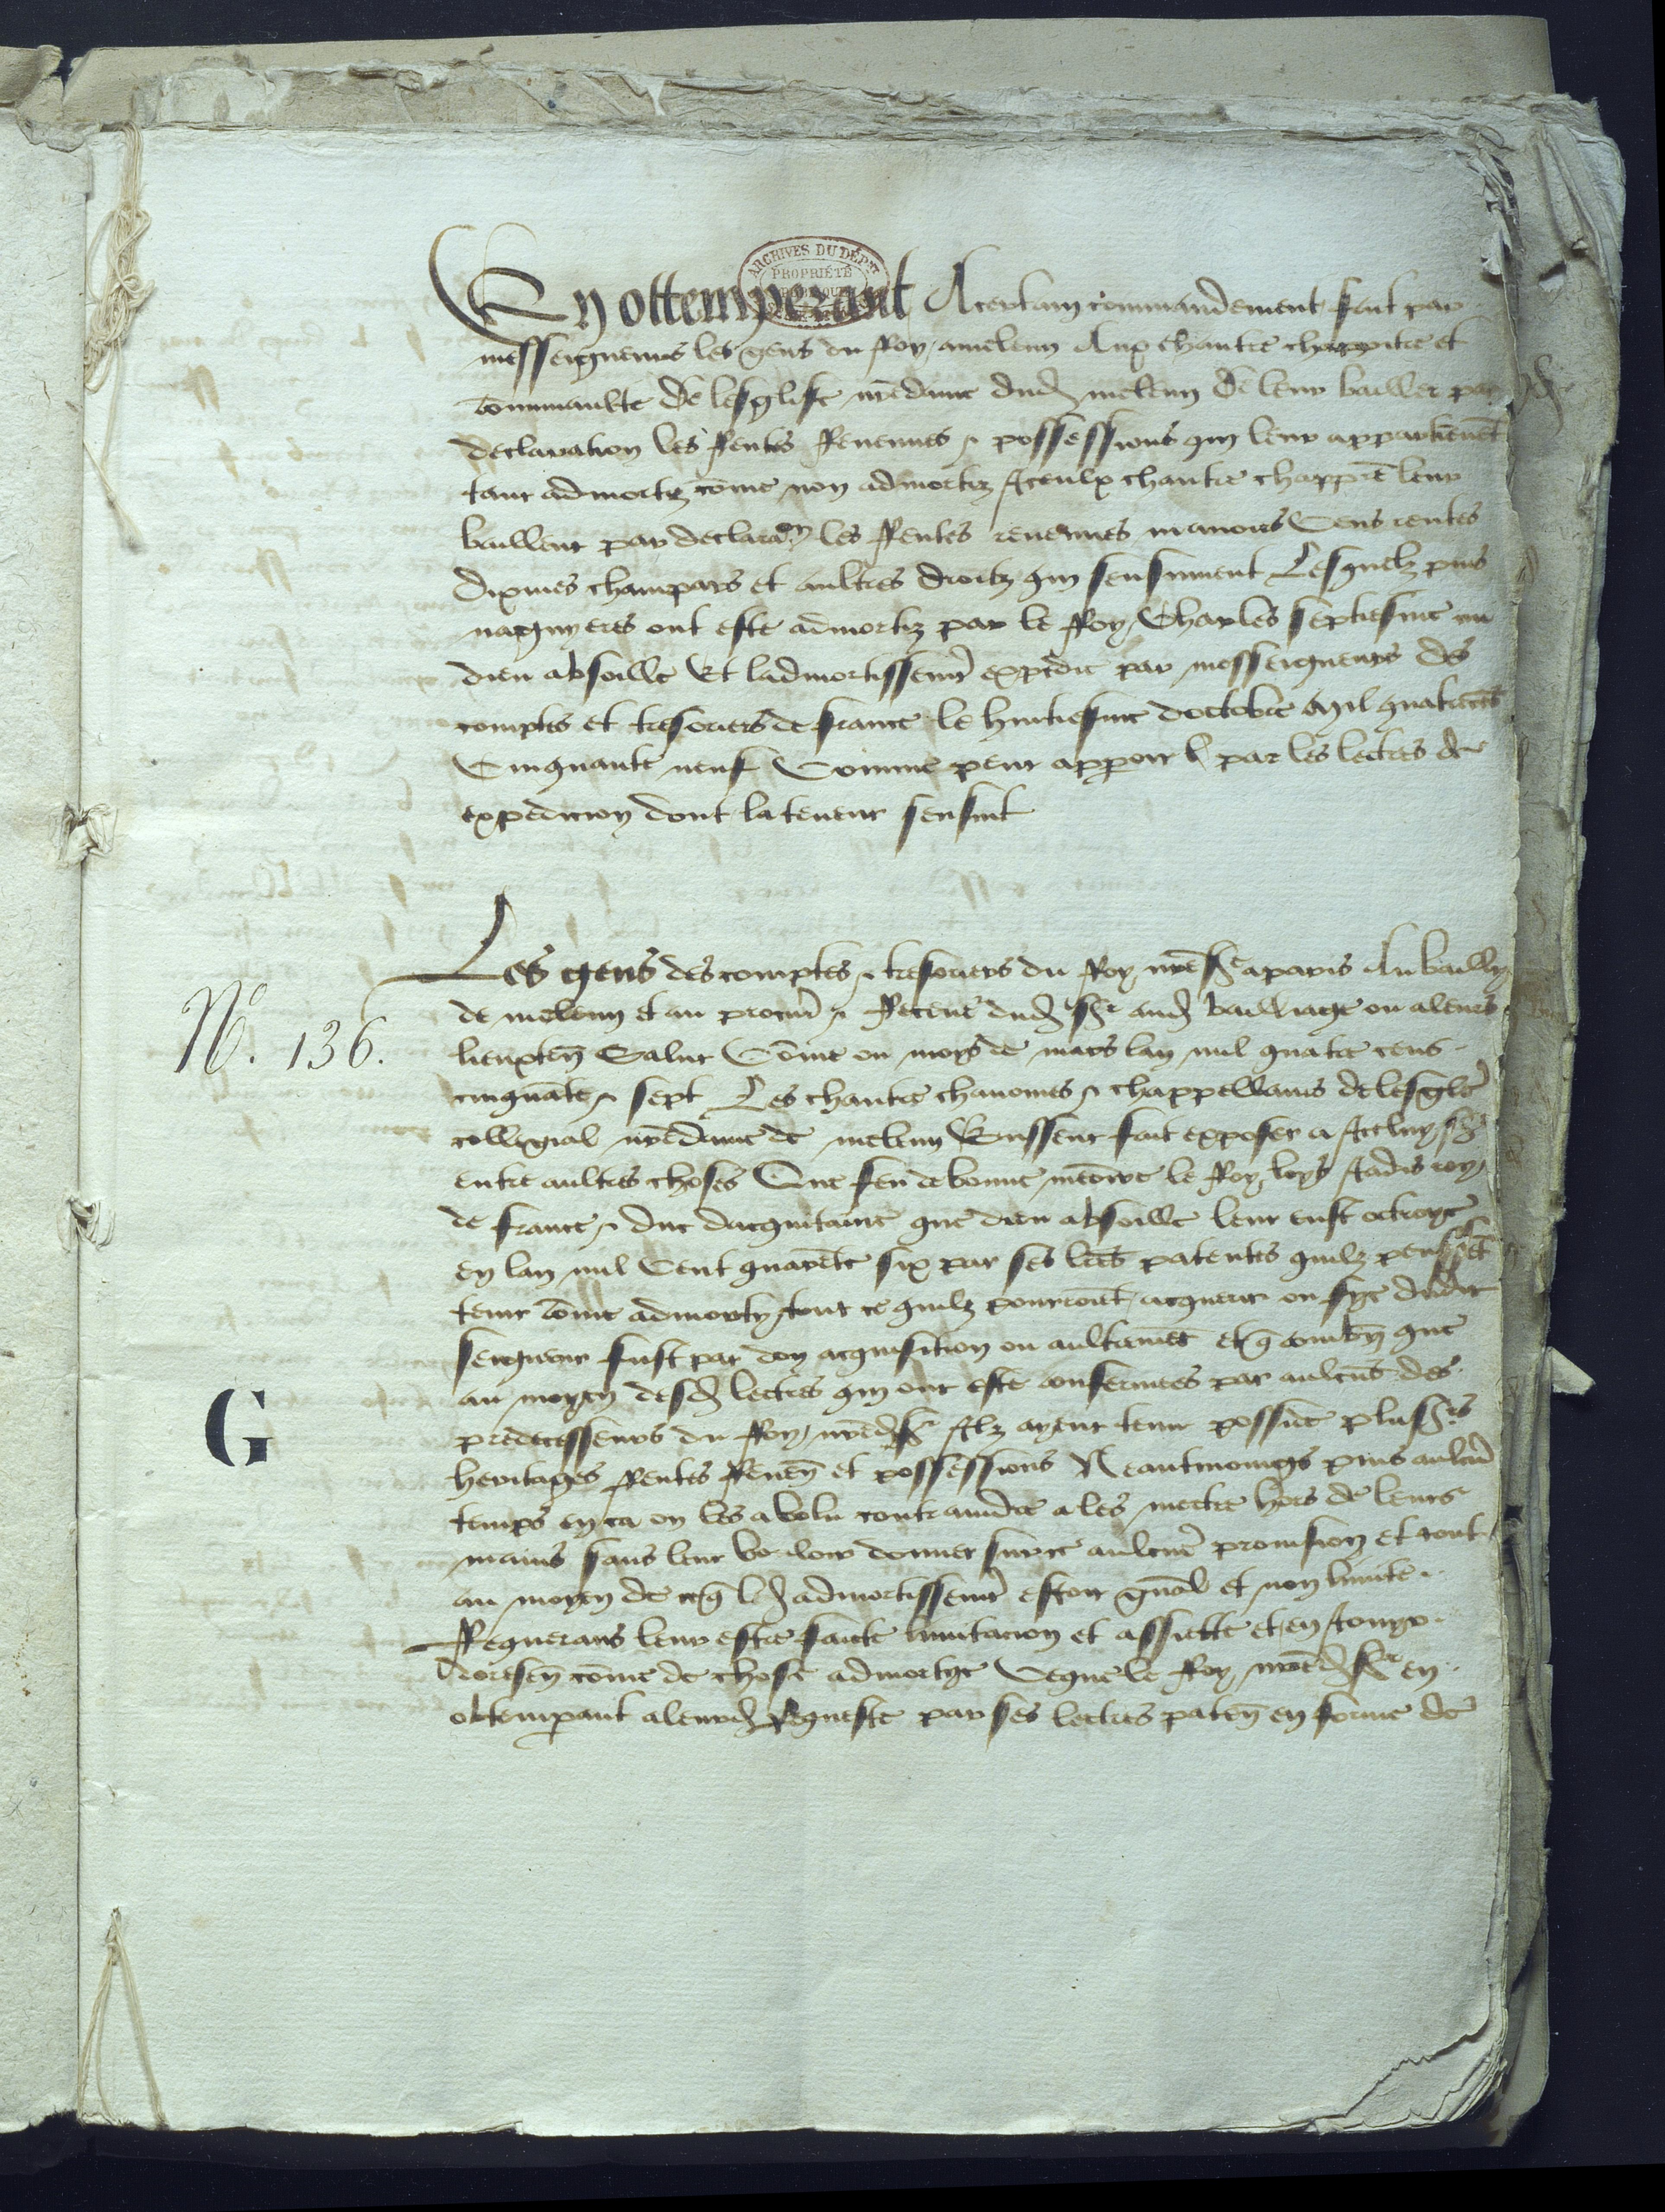 En ottemperant A certain commandement fait par
messeigneurs les gens du Roy, a meleun Aux chantre chappitre et
communaulte De lesglise nr̃edame dud meleun De leur bailler par
declaration les Rentes Revenues & possessions qui leur appartiēnēt
tant admortiz cōme non admortiz Iceulx chantre chapp̃re leur
baillent par declaraon les Rentes revenues manoirs Cens rentes
dixmes champars et aultres droitz qui sensuivent Lesquelz puis
nagueres ont este admortiz par le Roy, Charles septiesme
dieu absoille Et ladmortissemt expedie par messeigneurs des
comptes et tresoriers de france le huitiesme doctobre Mil quatrecēs
Cinquante neuf Comme peut apparoir par les lectres de
expedicion dont la teneur sensuit
Les gens des comptes & tresoriers du Roy nr̃e sr a paris Au bailly
de meleun et au procur̃ & Receue dud sr aud bailliage ou a leurs
lieuxteñ Salut Cōme ou moys de mars lan mil quatre cens
cinquāte & sept Les chantre chanoines & chappellains de lesglẽ
collegial nr̃edame de meleun Eussent fait exposer a Icelluy sr
entre aultres choses Que feu de bonne meōire le Roy loys Jadis roy
de france & duc dacquitaine que dieu absoille leur eust octroye
en lan mil Cent quarēte six par ses lr̃es patentes quilz peussēt
tenir cōme admorty tout ce quilz pourroiēt acquerir ou fye dudit
seigneur fust par don acquisition ou aultremēt et q combñ que
au moyen desd lectres qui ont este confermees par aulcūs des
predecesseurs du Roy, nr̃ed sr Ilz ayent tenu posside plusrs
heritages Rentes Reveñ et possessions Neantmoings puis aulcũ
temps en ca on les a volu contraindre a les mectre hors de leurs
mains sans leur voulloir donner surce aulcune provision et tout
au moyen de ce q led admortissemt estoit gnāl et non limite
Requerans leur estre faicte limitacion et assiette et en Joyr
doresēn cōme de chose admortye Veque le Roy, nr̃ed sr en
obtemperant a leurd Requeste par ses lectres pateñ en forme de
No. 136.
G
ARCHIVES DU DÉPT
PROPRIÉTÉ